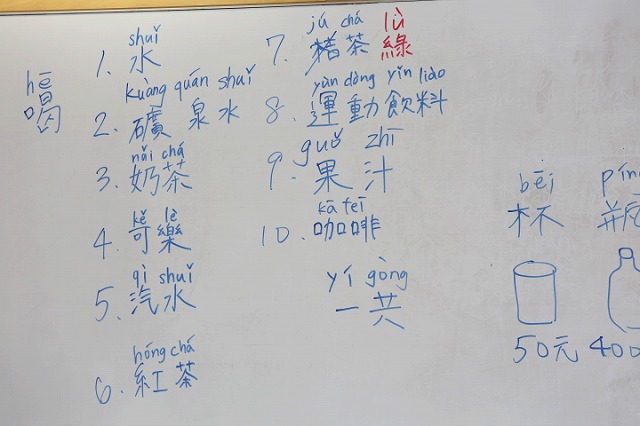 hē
喝
shuǐ
1. 水
kuàng quán shuǐ
2. 礦泉水
nǎi chá
3. 奶茶
kě lè
4. 可樂
qì shuǐ
5. 汽水
hóng chá
6. 紅茶
jú chá lǜ
7. 茶 綠
yùn dòng yǐn liào
8. 運動飲料
guǒ zhī
9. 果汁
kā fēi
10. 咖啡
yí gòng
一共
bēi
杯 瓶
50元 400